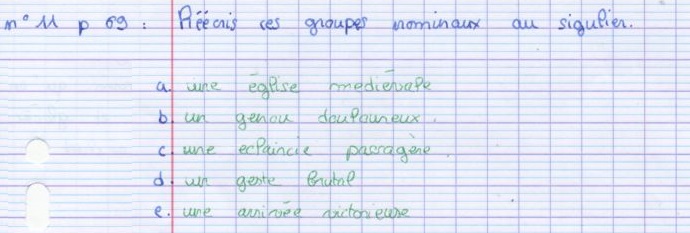 n° 11 p 69 : Réécris ces groupes nominaux au sigulier.
a. une église mediévale
b. un genou douloureux.
c. une eclaircie passagère.
d. un geste brutal
e. une arrivée victorieuse